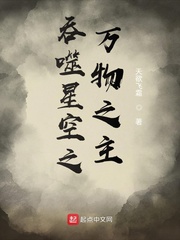 吞噬星空之
万物之主
著
起点中文网